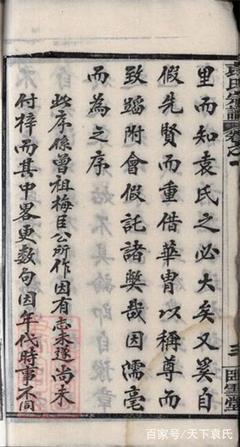 袁氏宗譜
卷之一
三
臥雪堂
里而知袁氏之必大矣又奚自
假先賢而重借華冑以稱尊而
致蹈附會假託諸獘哉因濡毫
而為之序
此序係曾祖梅臣公所作因有志未遂尚未
付梓而其中畧更數句因年代時事不同
百家号/天下袁氏